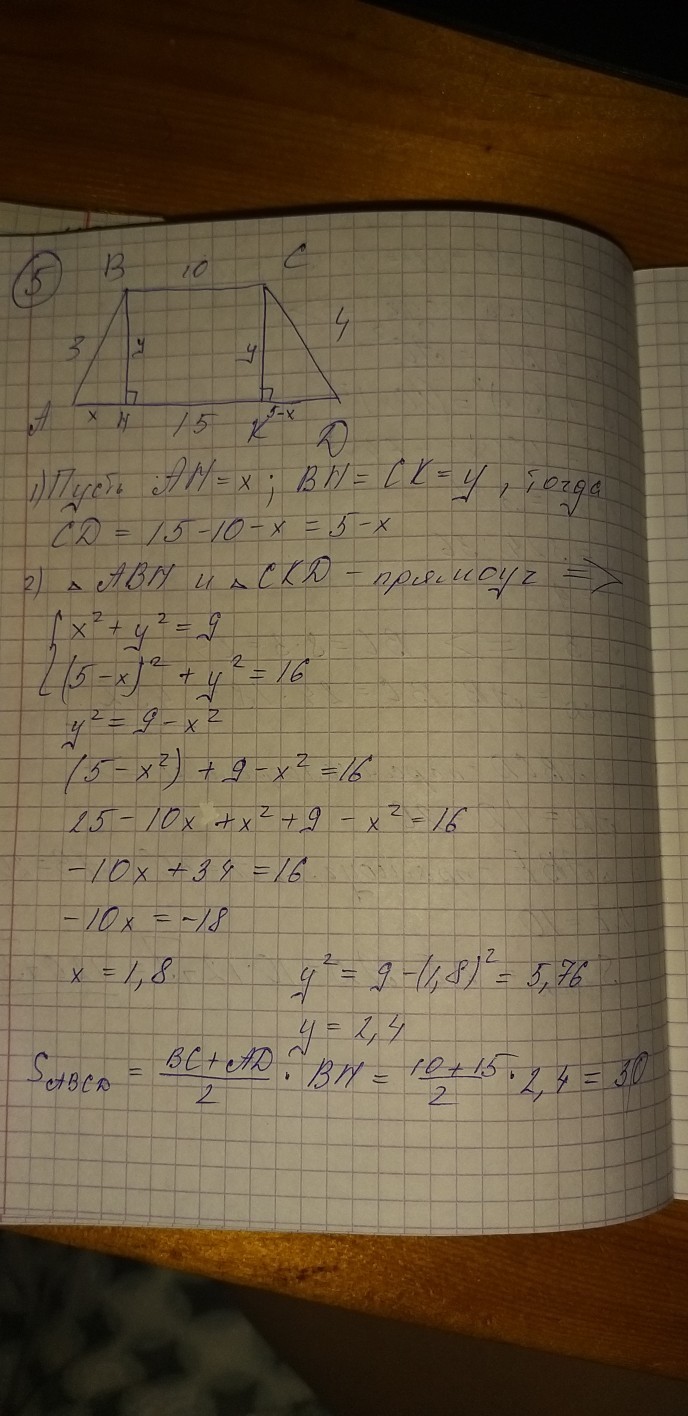 5
B 10 C
3 y y 4
A x H 15 K 5-x D
1) Пусть AH = x ; BH = CK = y , тогда
CD = 15-10-x = 5-x
2) △ABH и △CKD - прямоуг =>
x² + y² = 9
(5-x)² + y² = 16
y² = 9 - x²
(5-x²) + 9 - x² = 16
25 - 10x + x² + 9 - x² = 16
-10x + 34 = 16
-10x = -18
x = 1,8 y² = 9 - (1,8)² = 5,76
y = 2,4
S_ABCD = (BC+AD)/2 · BH = (10+15)/2 · 2,4 = 30